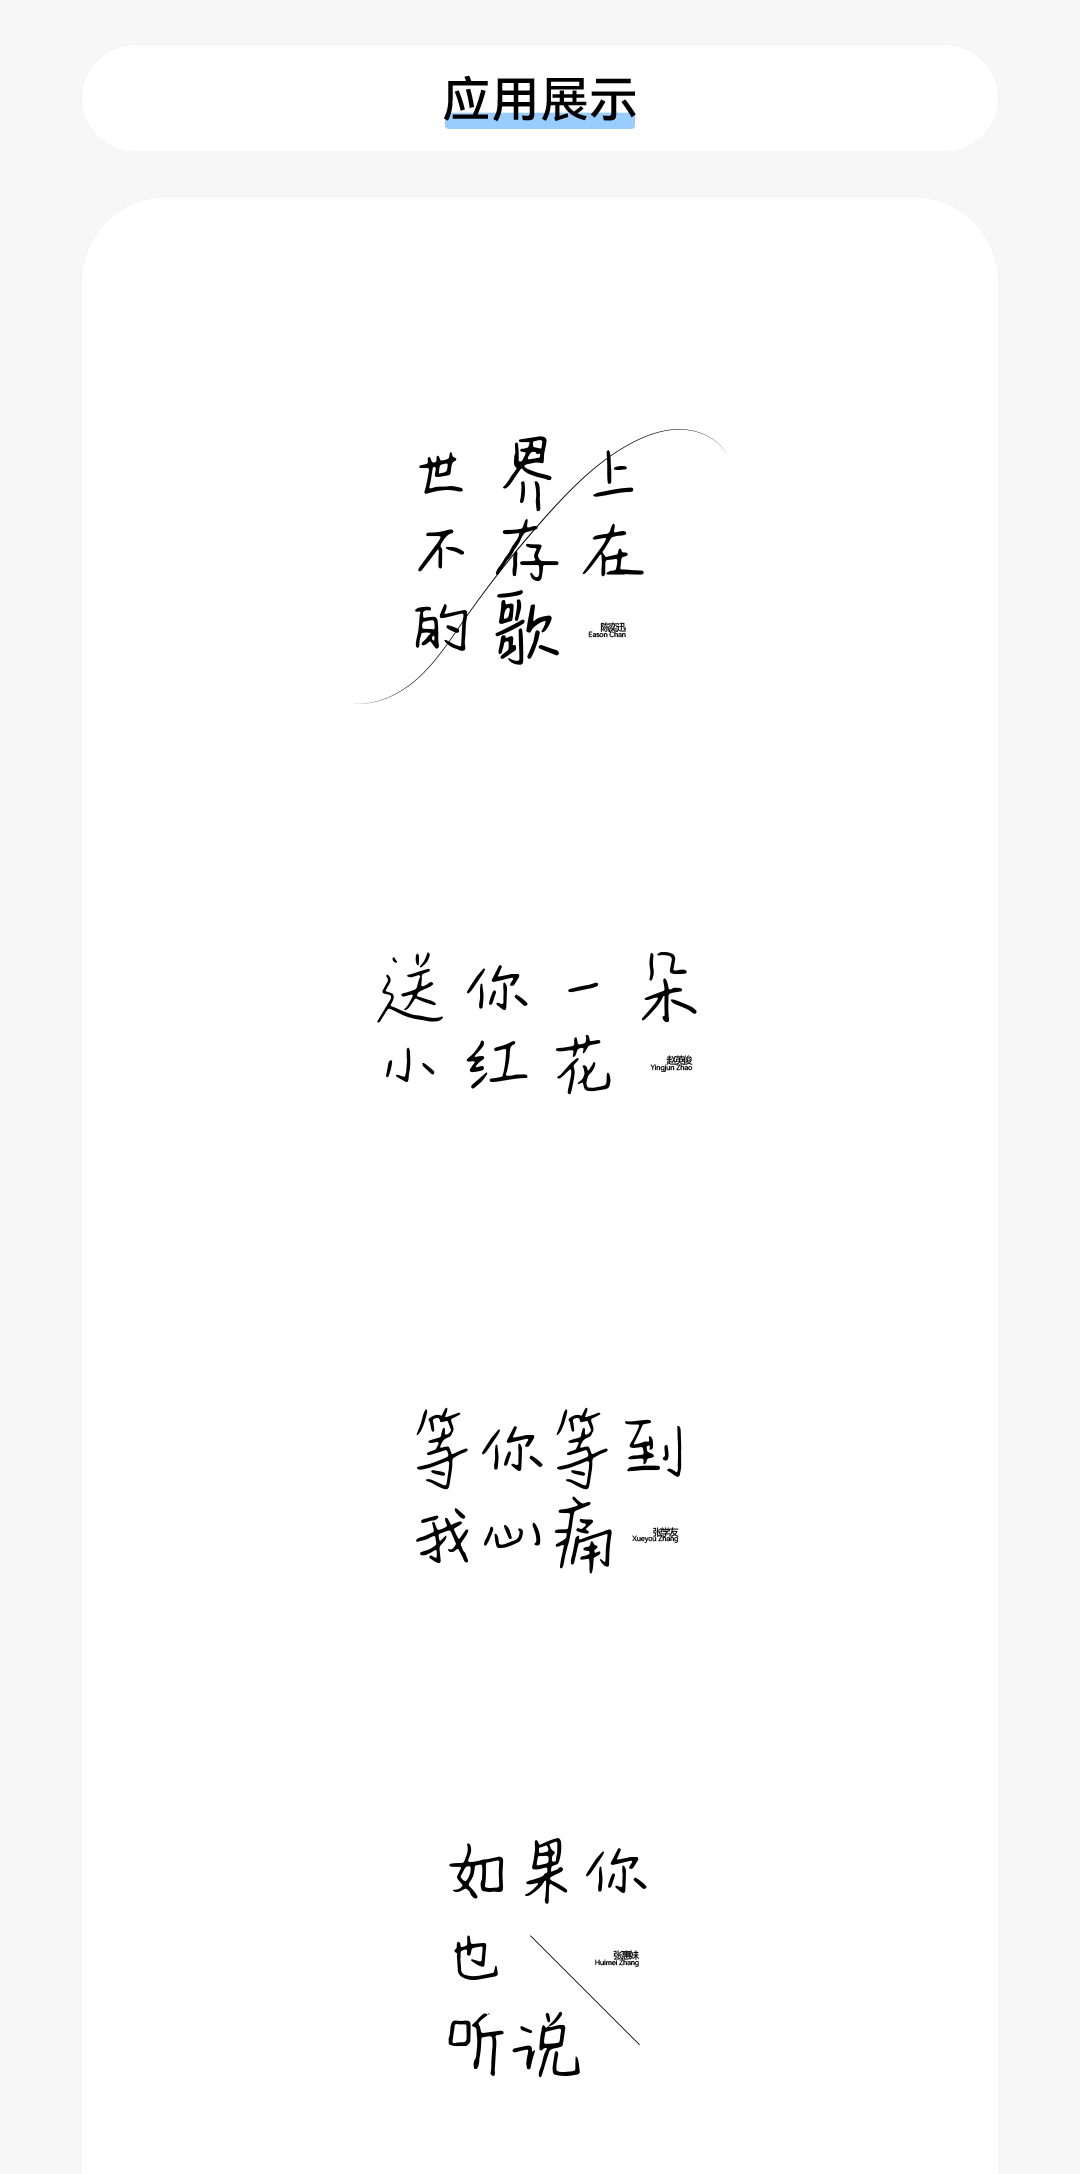 应用展示
世界上
不存在
的歌
陈奕迅
Eason Chan
送你一朵
小红花
赵英俊
Yingjun Zhao
等你等到
我心痛
张学友
Xueyou Zhang
如果你
也
张惠妹
Huimei Zhang
听说